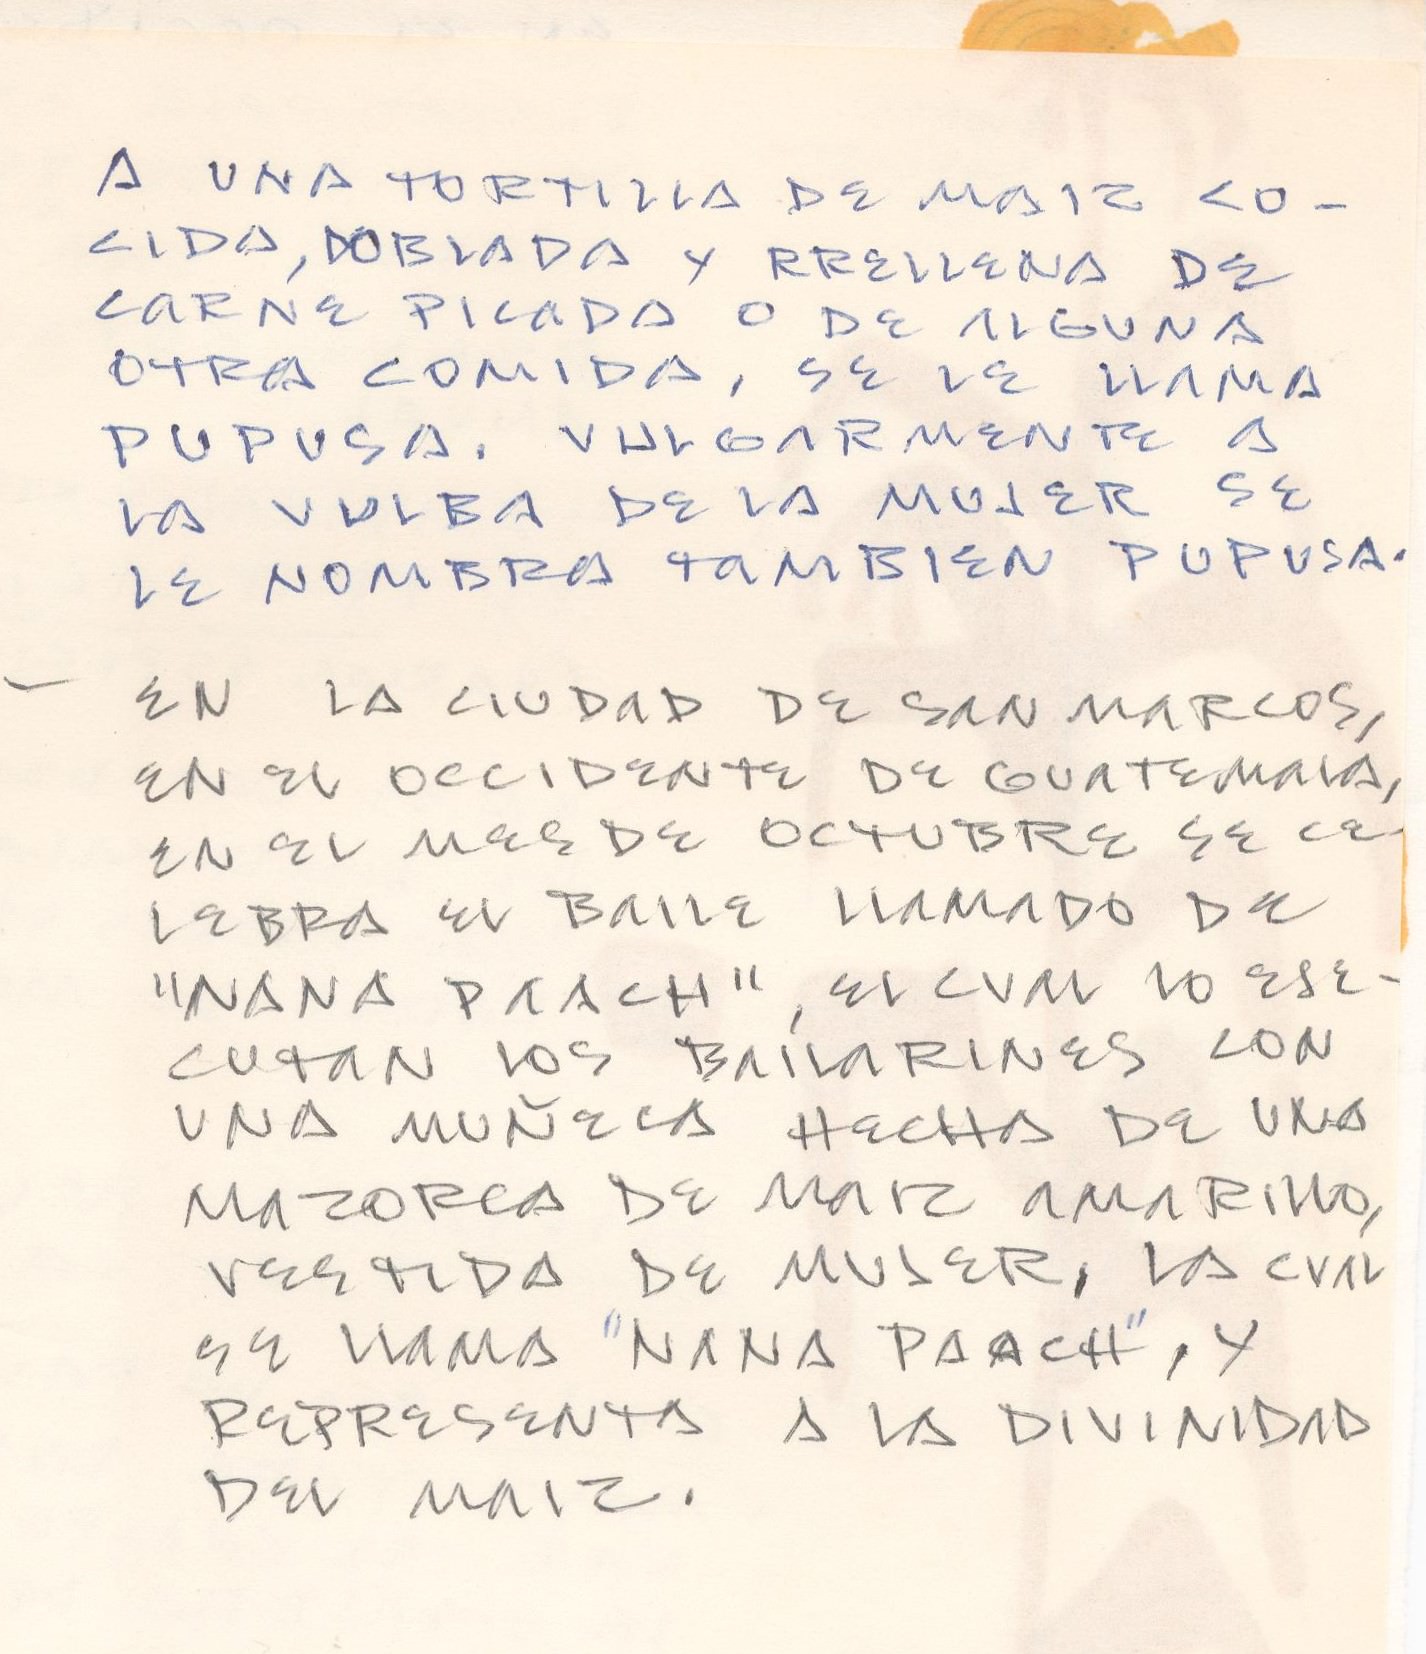 A UNA TORTILLA DE MAIZ CO-
CIDA, DOBLADA Y RRELLENA DE
CARNE PICADA O DE ALGUNA
OTRA COMIDA, SE LE LLAMA
PUPUSA. VULGARMENTE A
LA VULBA DE LA MUJER SE
LE NOMBRA TAMBIEN PUPUSA.
— EN LA CIUDAD DE SAN MARCOS,
EN EL OCCIDENTE DE GUATEMALA,
EN EL MES DE OCTUBRE SE CE-
LEBRA EL BAILE LLAMADO DE
"NANA PAACH", EL CUAL LO EJE-
CUTAN LOS BAILARINES CON
UNA MUÑECA HECHA DE UNA
MAZORCA DE MAIZ AMARILLO,
VESTIDA DE MUJER, LA CUAL
SE LLAMA "NANA PAACH", Y
REPRESENTA A LA DIVINIDAD
DEL MAIZ.